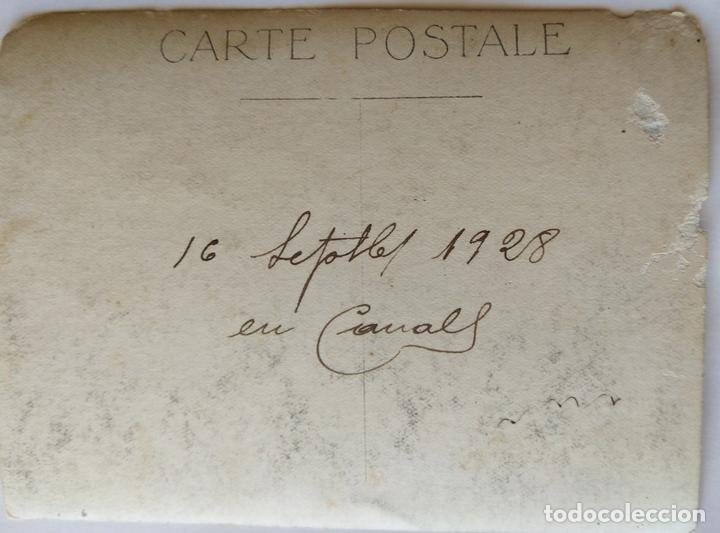 CARTE POSTALE
16 Septbe 1928
en Canals
todocoleccion